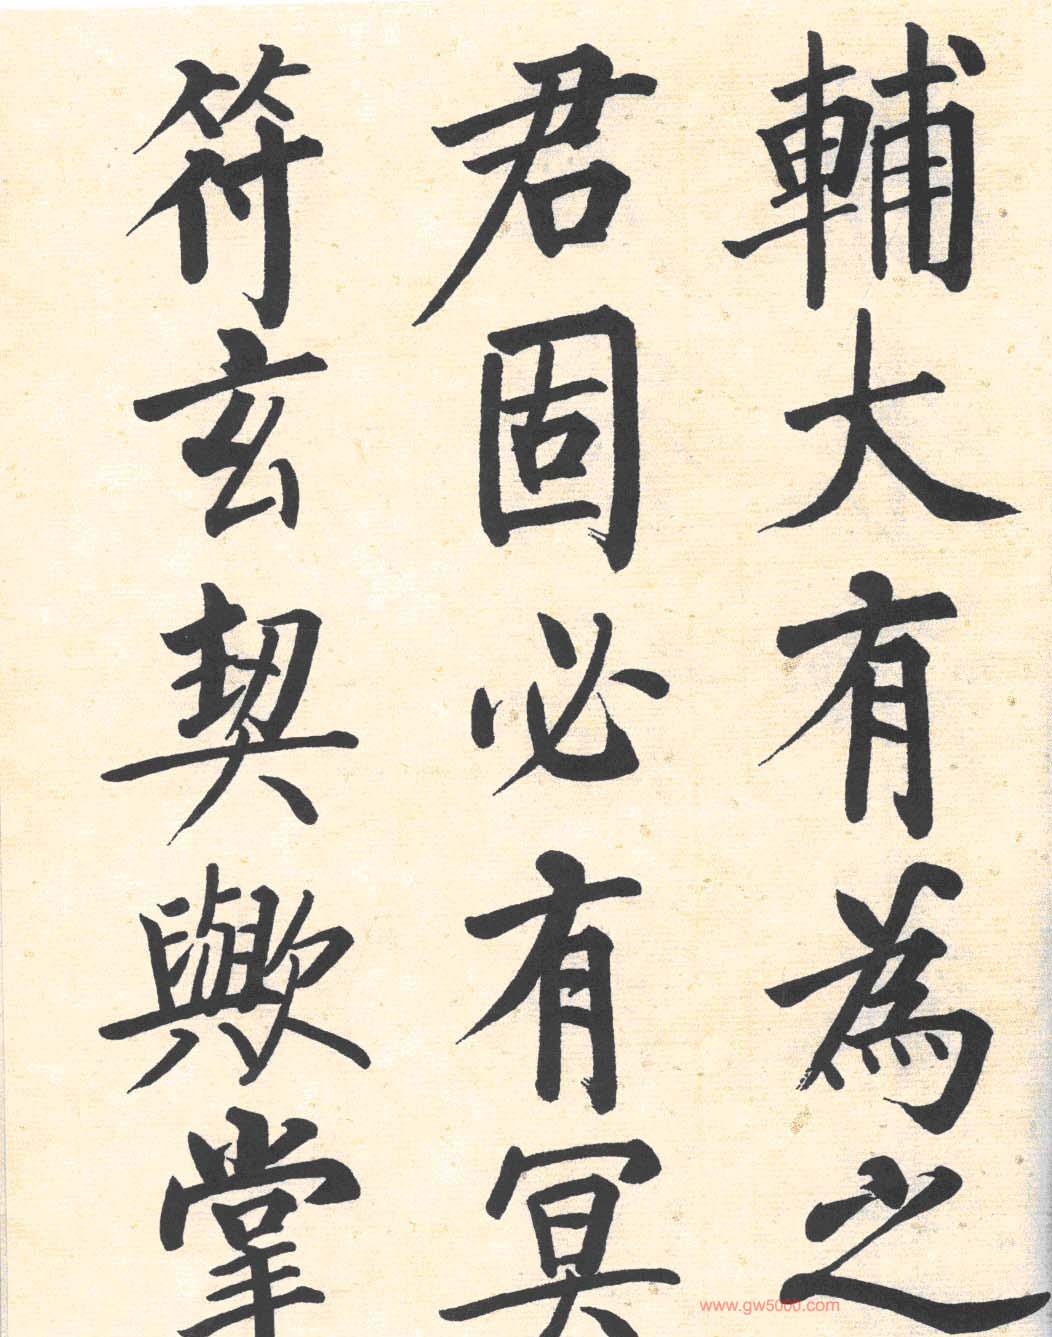 輔大有為之
君固必有冥
符玄契歟掌
www.gw5000.com